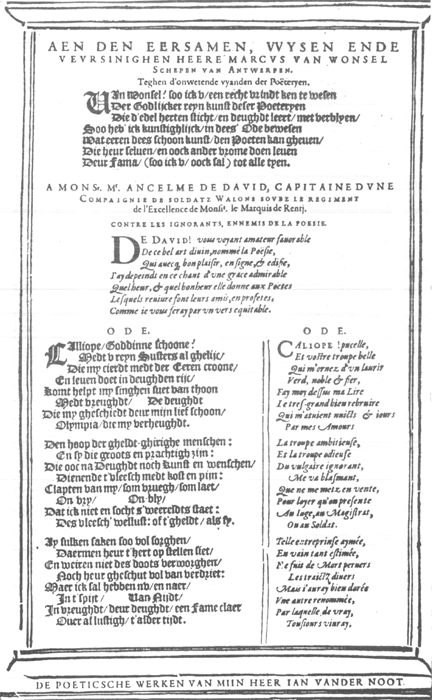 AEN DEN EERSAMEN, VVYSEN ENDE
VEVRSINIGHEN HEERE MARCVS VAN WONSEL
SCHEPEN VAN ANTWERPEN.
Teghen d'onwetende vyanden der Poëteryen.
VAn Wonsel! soo ick v/een recht vrindt ken te wesen
Der Godlijcker reyn kunst deser Poeteryen
Die d'edel herten sticht/en deughdt leert/met verblyen/
Soo heb' ick kunstighlijck/in dees' Ode bewesen
Wat eeren dees schoon kunst/den Poeten kan gheuen/
Die heur seluen/en oock ander vrome doen leuen
Deur Fama/(soo ick v/oock sal) tot alle tyen.
A MONSr. Mr. ANCELME DE DAVID, CAPITAINE DVNE
COMPAIGNIE DE SOLDATZ WALONS SOVBZ LE REGIMENT
de l'Excellence de Monsr. le Marquis de Rentj.
CONTRE LES IGNORANTS, ENNEMIS DE LA POESIE.
DE DAVID! vous voyant amateur fauorable
De ce bel art diuin, nommé la Poësie,
Qui auecq, bon plaisir, enseigne, & edifie,
I'ay depeindt en ce chant d'vne grace admirable
Quel heur, & quel bonheur elle donne aux Poetes
Lesquels reuiure font leurs amis, en profetes,
Comme ie vous feray par vn vers equitable.
ODE.
CAlliope/Goddinne schoone!
Medt v reyn Susters al ghelijc/
Die my cierdt medt der Eeren croone/
En leuen doet in deughden rijc/
Komt helpt my singhen suet van thoon
Medt vreughdt/ De deughdt
Die my gheschiedt deur mijn lief schoon/
Olympia/die my verheughdt.
Den hoop der gheldt-ghirighe menschen:
En sy die groots en prachtigh zijn:
Die ooc na Deughdt noch kunst en wenschen/
Dienende t'vleesch medt kost en pijn:
Clapten van my/som vruegh/som laet/
On vry/ On bly/
Dat ick niet en socht s'weereldts staet:
Des vleesch' wellust: oft gheldt/als sy.
Ay sulken saken soo vol sorghen/
Daermen heur t'hert op stellen siet/
En weiren niet des doots verworghen/
Noch heur gheschut vol van verdriet:
Maer ick sal hebben nv/en naer/
In t'spijt/ Van Nijdt/
In vreughdt/deur deughdt/een Fame claer
Ouer al lustigh/t'alder tijdt.
ODE.
CALIOPE! pucelle,
Et vostre troupe belle
Qui m'ornez d'vn laurir
Verd, noble & fier,
Fay moy dessus ma Lire
Le tres-grand bien rebruire
Qui m'atuient nuicts & iours
Par mes Amours
La troupe ambitieuse,
Et la troupe odieuse
Du vulgaire ignorant,
Me va blasmant,
Que ne me metz en vente,
Pour loyer qu'on presente
Au luge, au Magistrat,
Ou au Soldat.
Telle entreprinse aymée,
En vain tant estimée,
Ne fuit de Mort peruers
Les traictz diuers
Mais i'auray bien dorée
Vne autre renommée,
Par laquelle, de vray,
Tousiours viuray.
DE POETICSCHE WERKEN VAN MIJN HEER IAN VANDER NOOT.